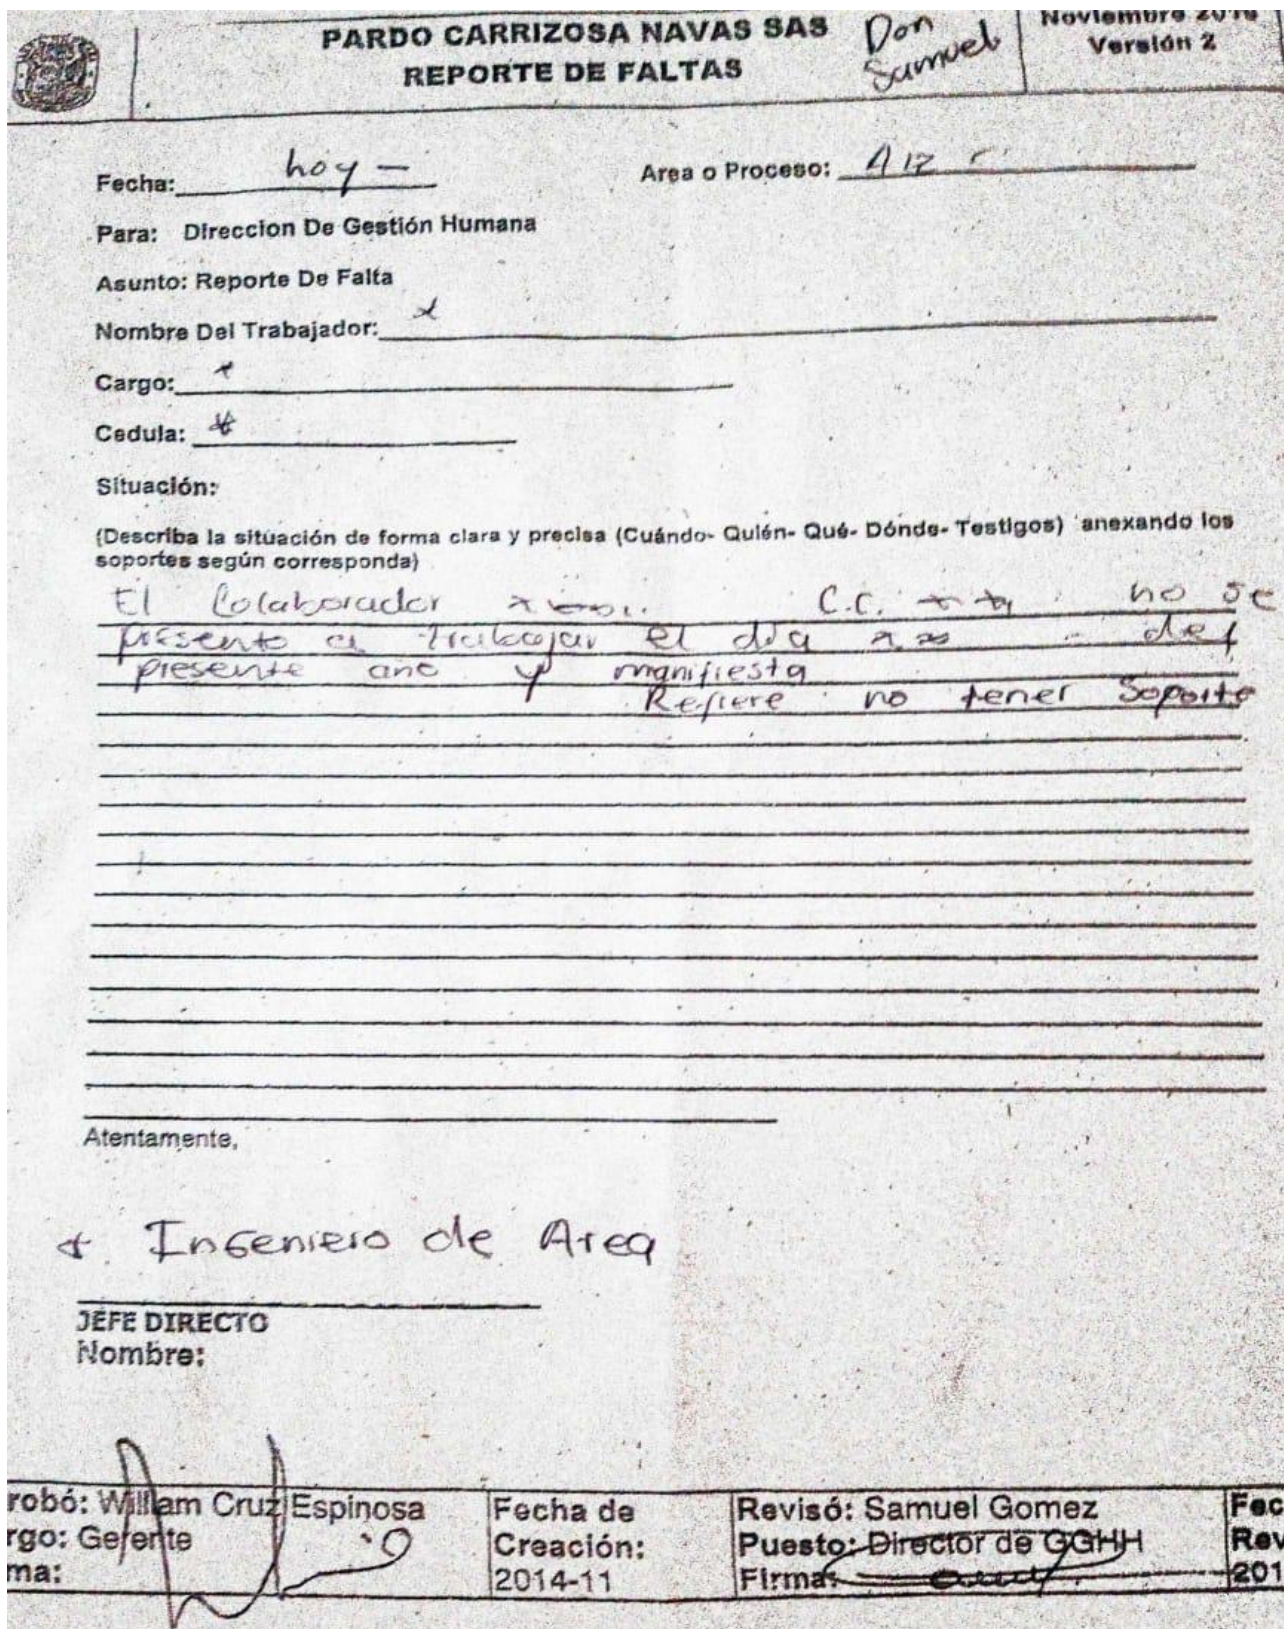 PARDO CARRIZOSA NAVAS SAS
REPORTE DE FALTAS
Don
Samuel
Noviembre
Versión 2
Fecha: hoy - Area o Proceso:
Para: Direccion De Gestión Humana
Asunto: Reporte De Falta
Nombre Del Trabajador: x
Cargo: x
Cedula:
Situación:
(Describa la situación de forma clara y precisa (Cuándo- Quién- Qué- Dónde- Testigos) anexando los
soportes según corresponda)
El Colaborador C.C. no se
presento a trabajar el día xx del
presente año y manifiesta
Refiere no tener Soporte
Atentamente,
Ingeniero de Area
JEFE DIRECTO
Nombre:
robó: William Cruz Espinosa
rgo: Gerente
ma:
Fecha de
Creación:
2014-11
Revisó: Samuel Gomez
Puesto: Director de GGHH
Firma:
Fec
Rev
201